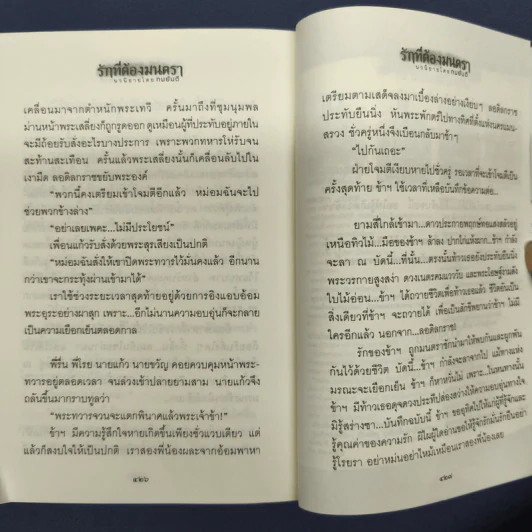 รักที่ต้องมนตรา
นวนิยายโดย ทมยันตี
เคลื่อนมาจากตำหนักพระเทวี ครั้นมาถึงที่ชุมนุมพล
ม่านหน้าพระเสลี่ยงก็ถูกรูดออก ดูเหมือนผู้ที่ประทับอยู่ภายใน
จะมีถ้อยรับสั่งอะไรบางประการ เพราะพวกทหารโห่รับจน
สะท้านสะเทือน ครั้นแล้วพระเสลี่ยงนั้นก็เคลื่อนลับไปใน
เงามืด ลอดิลกราชขยับพระองค์
"พวกนี้คงเตรียมเข้าโจมตีอีกแล้ว หม่อมฉันจะไป
ช่วยพวกข้างล่าง"
"อย่าเลยเพคะ...ไม่มีประโยชน์"
เพื่อนแก้วรับสั่งด้วยพระสุรเสียงเป็นปกติ
"หม่อมฉันสั่งให้เขาปิดพระทวารไว้มั่นคงแล้ว อีกนาน
กว่าเขาจะกระทุ้งผ่านเข้ามาได้"
เราใช้ช่วงระยะเวลาสุดท้ายอยู่ด้วยการอิงแอบอ้อม
พระอุระอย่างผาสุก เพราะ...อีกไม่นานความอบอุ่นก็จะกลาย
เป็นความเยือกเย็นตลอดกาล
พี่รื่น พี่โรย นายแก้ว นายขวัญ คอยควบคุมหน้าพระ-
ทวารอยู่ตลอดเวลา จนล่วงเข้าปลายยามสาม นายแก้วจึง
ถลันขึ้นมากราบทูลว่า
"พระทวารจวนจะแตกพินาศแล้วพระเจ้าข้า!"
ข้าฯ มีความรู้สึกใจหายเกิดขึ้นเพียงชั่วแวบเดียว แต่
แล้วก็สงบใจให้เป็นปกติ เราสองพี่น้องผละจากอ้อมพาหา
๔๒๖
รักที่ต้องมนตรา
นวนิยายโดย ทมยันตี
เตรียมตามเสด็จลงมาเบื้องล่างอย่างเงียบๆ ลอดิลกราช
ประทับยืนนิ่ง หันพระพักตร์ไปทางทิศที่ตั้งแห่งนครแมน-
สรวง ชั่วครู่หนึ่งจึงเบือนกลับมาช้าๆ
"ไปกันเถอะ"
ฝ่ายโจมตีเงียบหายไปชั่วครู่ รอเวลาที่จะเข้าโจมตีเป็น
ครั้งสุดท้าย ข้าฯ ใช้เวลาที่เหลือบันทึกข้อความต่อ...
ยามสี่ใกล้เข้ามา...ดาวประกายพฤกษ์ทอแสงสดใสอยู่
เหนือทิวไม้...มือของข้าฯ ล้าลง ปากไก่แห้งผาก...ข้าฯ กำลัง
จะลา ณ บัดนี้...ที่นั้น...ตรงนั้นท้าวเธอยังประทับยืนนิ่ง
พระวรกายสูงสง่า ดวงเนตรคมแวววับ และพระโอษฐ์รูปงาม
ไปไม่อ่อน...ข้าฯ ได้ถวายชีวิตเพื่อท้าวเธอแล้ว ชีวิตอันเป็น
สิ่งเดียวที่ข้าฯ จะถวายได้ เพื่อเป็นสักขีพยานว่าข้าฯ ไม่มี
ใครอีกแล้ว นอกจาก...ลอดิลกราช!
รักของข้าฯ ถูกมนตราชักนำมาให้พบกันและผูกพัน
กันไว้ด้วยชีวิต บัดนี้...ข้าฯ กำลังจะลาจากไป แม้ทางแห่ง
มรณะจะเยือกเย็น ข้าฯ ก็หาหวั่นไม่ เพราะ...ในหนทางนั้น
ข้าฯ มีท้าวเธอดุจดวงประทีปส่องสว่างให้ความอบอุ่นทางใจ
มิรู้สร่างซา...บันทึกฉบับนี้ ข้าฯ ขออุทิศไปให้แก่ผู้ที่รู้จักและ
รู้คุณค่าของความรัก
๔๒๗